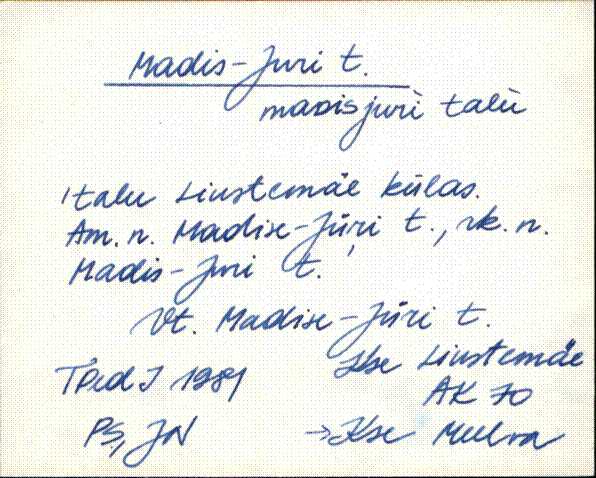 Madis-Juri t.
madisjuri talu
'talu Liustemäe külas.
Am. n. Madise-Jüri t., rk. n.
Madis-Juri t.
Vt. Madise-Jüri t.
TPedI 1981
Kse Liustemäe
AK 70
PS, JN
→ Kse Mulra